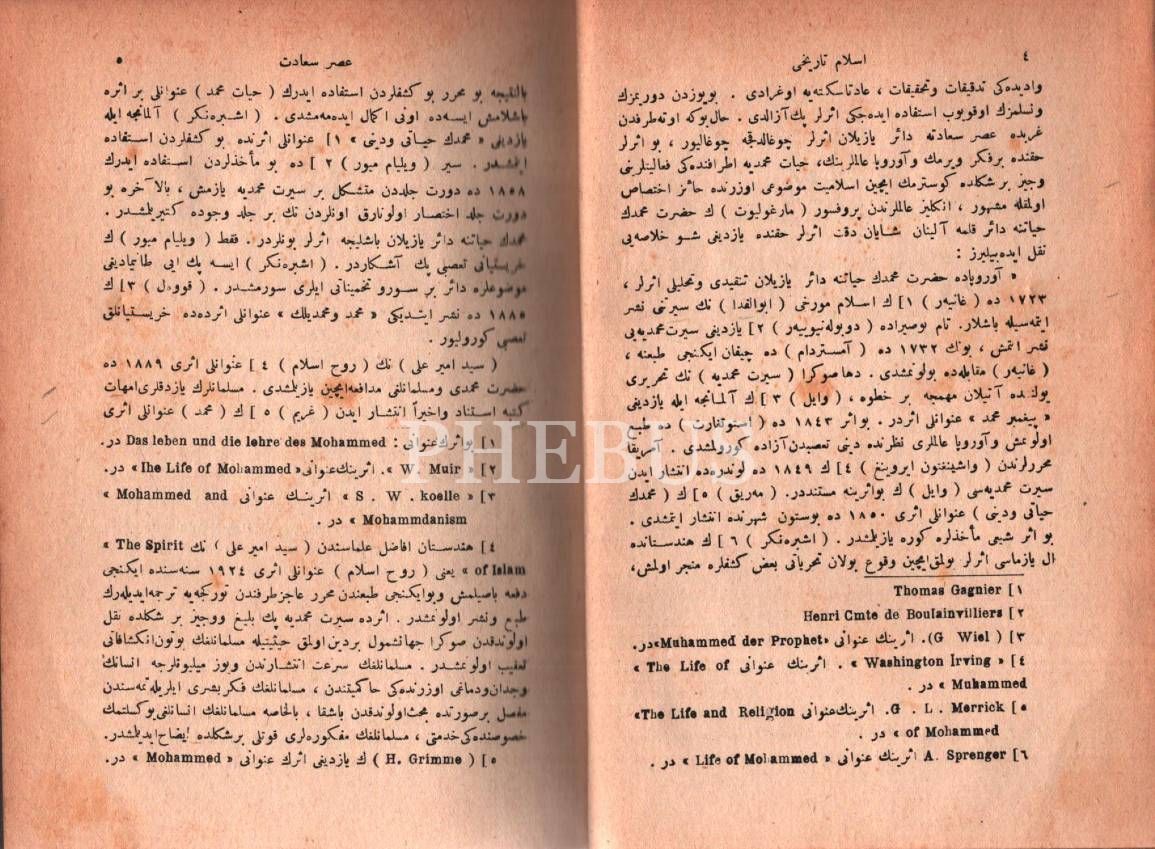 ٤ اسلام تاریخی
وادیده‌کی تدقیقات وتحقیقات ، عادتاسکته‌یه اوغرادی . بویوزدن دوریمزك
ونسلمزك اوقویوب استفاده ایده‌جکی اثرلر پك‌آزالدی . حال‌بوکه اوته‌طرفدن
غربده عصر سعادته دائر یازیلان اثرلر چوغالدقجه چوغالیور ، بو اثرلر
حقنده برفکر ویرمك وآوروپا عالملرینك، حیات محمدیه اطرافنده‌کی فعالیتلرینی
وجیز بر شکلده کوسترمك ایچین اسلامیت موضوعی اوزرنده حائز اختصاص
اولمقله مشهور ، انکلیز عالملرندن پروفسور ( مارغولیوت ) ك حضرت محمدك
حیاتنه دائر قلمه آلینان شایان دقت اثرلر حقنده یازدیغی شو خلاصه‌یی
نقل ایده‌بیلیرز :
« آوروپاده حضرت محمدك حیاتنه دائر یازیلان تنقیدی وتحلیلی اثرلر ،
١٧٢٣ ده ( غانیه‌ر ) ١] ك اسلام مورخی ( ابوالفدا ) نك سیرتنی نشر
ایتمه‌سیله باشلار. تام بوصیراده ( دوبوله‌نویییه‌ر ) ٢] یازدیغی سیرت محمدیه‌یی
نشر ایتمش ، بونك ١٧٣٢ ده ( آمستردام ) ده چیقان ایکنجی طبعنه ،
( غانیه‌ر ) مقابله‌ده بولونمشدی . دهاصوکرا ( سیرت محمدیه ) نك تحریری
یولنده آتیلان مهمجه بر خطوه ، ( وایل ) ٣] ك آلمانجه ایله یازدیغی
« پیغمبر محمد » عنوانلی اثردر. بواثر ١٨٤٣ ده ( استوتغارت ) ده طبع
اولونمش وآوروپا عالملری نظرنده دینی تعصبدن‌آزاده کورولمشدی . آمریقا
محررلرندن ( واشینغتون ایروینغ ) ٤] ك ١٨٤٩ ده لوندره‌ده انتشار ایدن
سیرت محمدیه‌سی ( وایل ) ك بواثرینه مستنددر. ( مه‌ریق ) ٥] ك ( محمدك
حیاتی ودینی ) عنوانلی اثری ١٨٥٠ ده بوستون شهرنده انتشار ایتمشدی .
بو اثر شیعی مأخذلره کوره یازیلمشدر . ( اشپره‌نکر ) ٦] ك هندستانده
ال یازماسی اثرلر بولمق‌ایچین وقوع بولان تحریاتی بعض کشفلره منجر اولمش،
١] Thomas Gagnier
٢] Henri Cmte de Boulainvilliers
٣] ( G Wiel). اثرینك عنوانی «Muhammed der Prophet»در.
٤] « Washington Irving » . اثرینك عنوانی « The Life of
Muhammed » در .
٥] G . L . Merrick. اثرینك‌عنوانی «The Life and Religion
of Mohammed » در .
٦] A. Sprenger اثرینك عنوانی « Life of Mohammed » در .
عصر سعادت ٥
بالنتیجه بو محرر بو کشفلردن استفاده ایدرك ( حیات محمد ) عنوانلی بر اثره
باشلامش ایسه‌ده اونی اکمال ایده‌مه‌مشدی . ( اشپره‌نکر ) آلمانجه ایله
یازدیغی « محمدك حیاتی ودینی » ١] عنوانلی اثرنده بو کشفلردن استفاده
ایتمشدر . سیر ( ویلیام میور ) ٢ ] ده بو مأخذلردن استفاده ایدرك
١٨٥٨ ده دورت جلددن متشکل بر سیرت محمدیه یازمش ، بالآخره بو
دورت جلد اختصار اولونارق اونلردن تك بر جلد وجوده کتیریلمشدر.
محمدك حیاتنه دائر یازیلان باشلیجه اثرلر بونلردر. فقط ( ویلیام میور ) ك
خریستیانی تعصبی پك آشکاردر. ( اشپره‌نکر ) ایسه پك ایی طانیمادیغی
موضوعلره دائر بر سورو تخمیناتی ایلری سورمشدر . ( قوه‌دل ) ٣] ك
١٨٨٥ ده نشر ایتدیکی « محمد ومحمدیلك » عنوانلی اثرده‌ده خریستیانلق
تعصبی کورولیور .
( سید امیر علی ) نك ( روح اسلام ) ٤ ] عنوانلی اثری ١٨٨٩ ده
حضرت محمدی ومسلمانلغی مدافعه‌ایچین یازیلشدی . مسلمانلرك یازدقلری‌امهات
کتبه استناد واخیراً انتشار ایدن ( غریم ) ٥ ] ك ( محمد ) عنوانلی اثری
١] بواثرك‌عنوانی : Das leben und die lehre des Mohammed در.
٢] « W. Muir ». اثرینك‌عنوانی«The Life of Mohammed » در.
٣] « S . W . koelle » اثرینك عنوانی « Mohammed and
Mohammdanism » در .
٤] هندستان افاضل علماسندن ( سید امیر علی ) نك « The Spirit
of Islam » یعنی ( روح اسلام ) عنوانلی اثری ١٩٢٤ سنه‌سنده ایکنجی
دفعه باصیلمش وبوایکنجی طبعندن محرر عاجزطرفندن تورکجه‌یه ترجمه‌ایدیله‌رك
طبع ونشر اولونمشدر . اثرده سیرت محمدیه پك بلیغ ووجیز بر شکلده نقل
اولوندقدن صوکرا جهانشمول بردین‌اولمق حیثیتیله مسلمانلغك بوتون‌انکشافاتی
تعقیب اولونمشدر . مسلمانلغك سرعت انتشارندن ویوز میلیونلرجه انسانك
وجدان‌ودماغی اوزرنده‌کی حاکمیتندن ، مسلمانلغك فکربشری ایلریله‌تمه‌سندن
مفصل برصورتده بحث‌اولوندقدن باشقا ، بالخاصه مسلمانلغك انسانلغی‌یوکسلتمك
خصوصنده‌کی خدمتی ، مسلمانلغك مفکوره‌لری قوتلی برشکلده ایضاح‌ایدیلمشدر.
٥] ( H. Grimme ) ك یازدیغی اثرك عنوانی « Mohammed » در.
PHEBUS